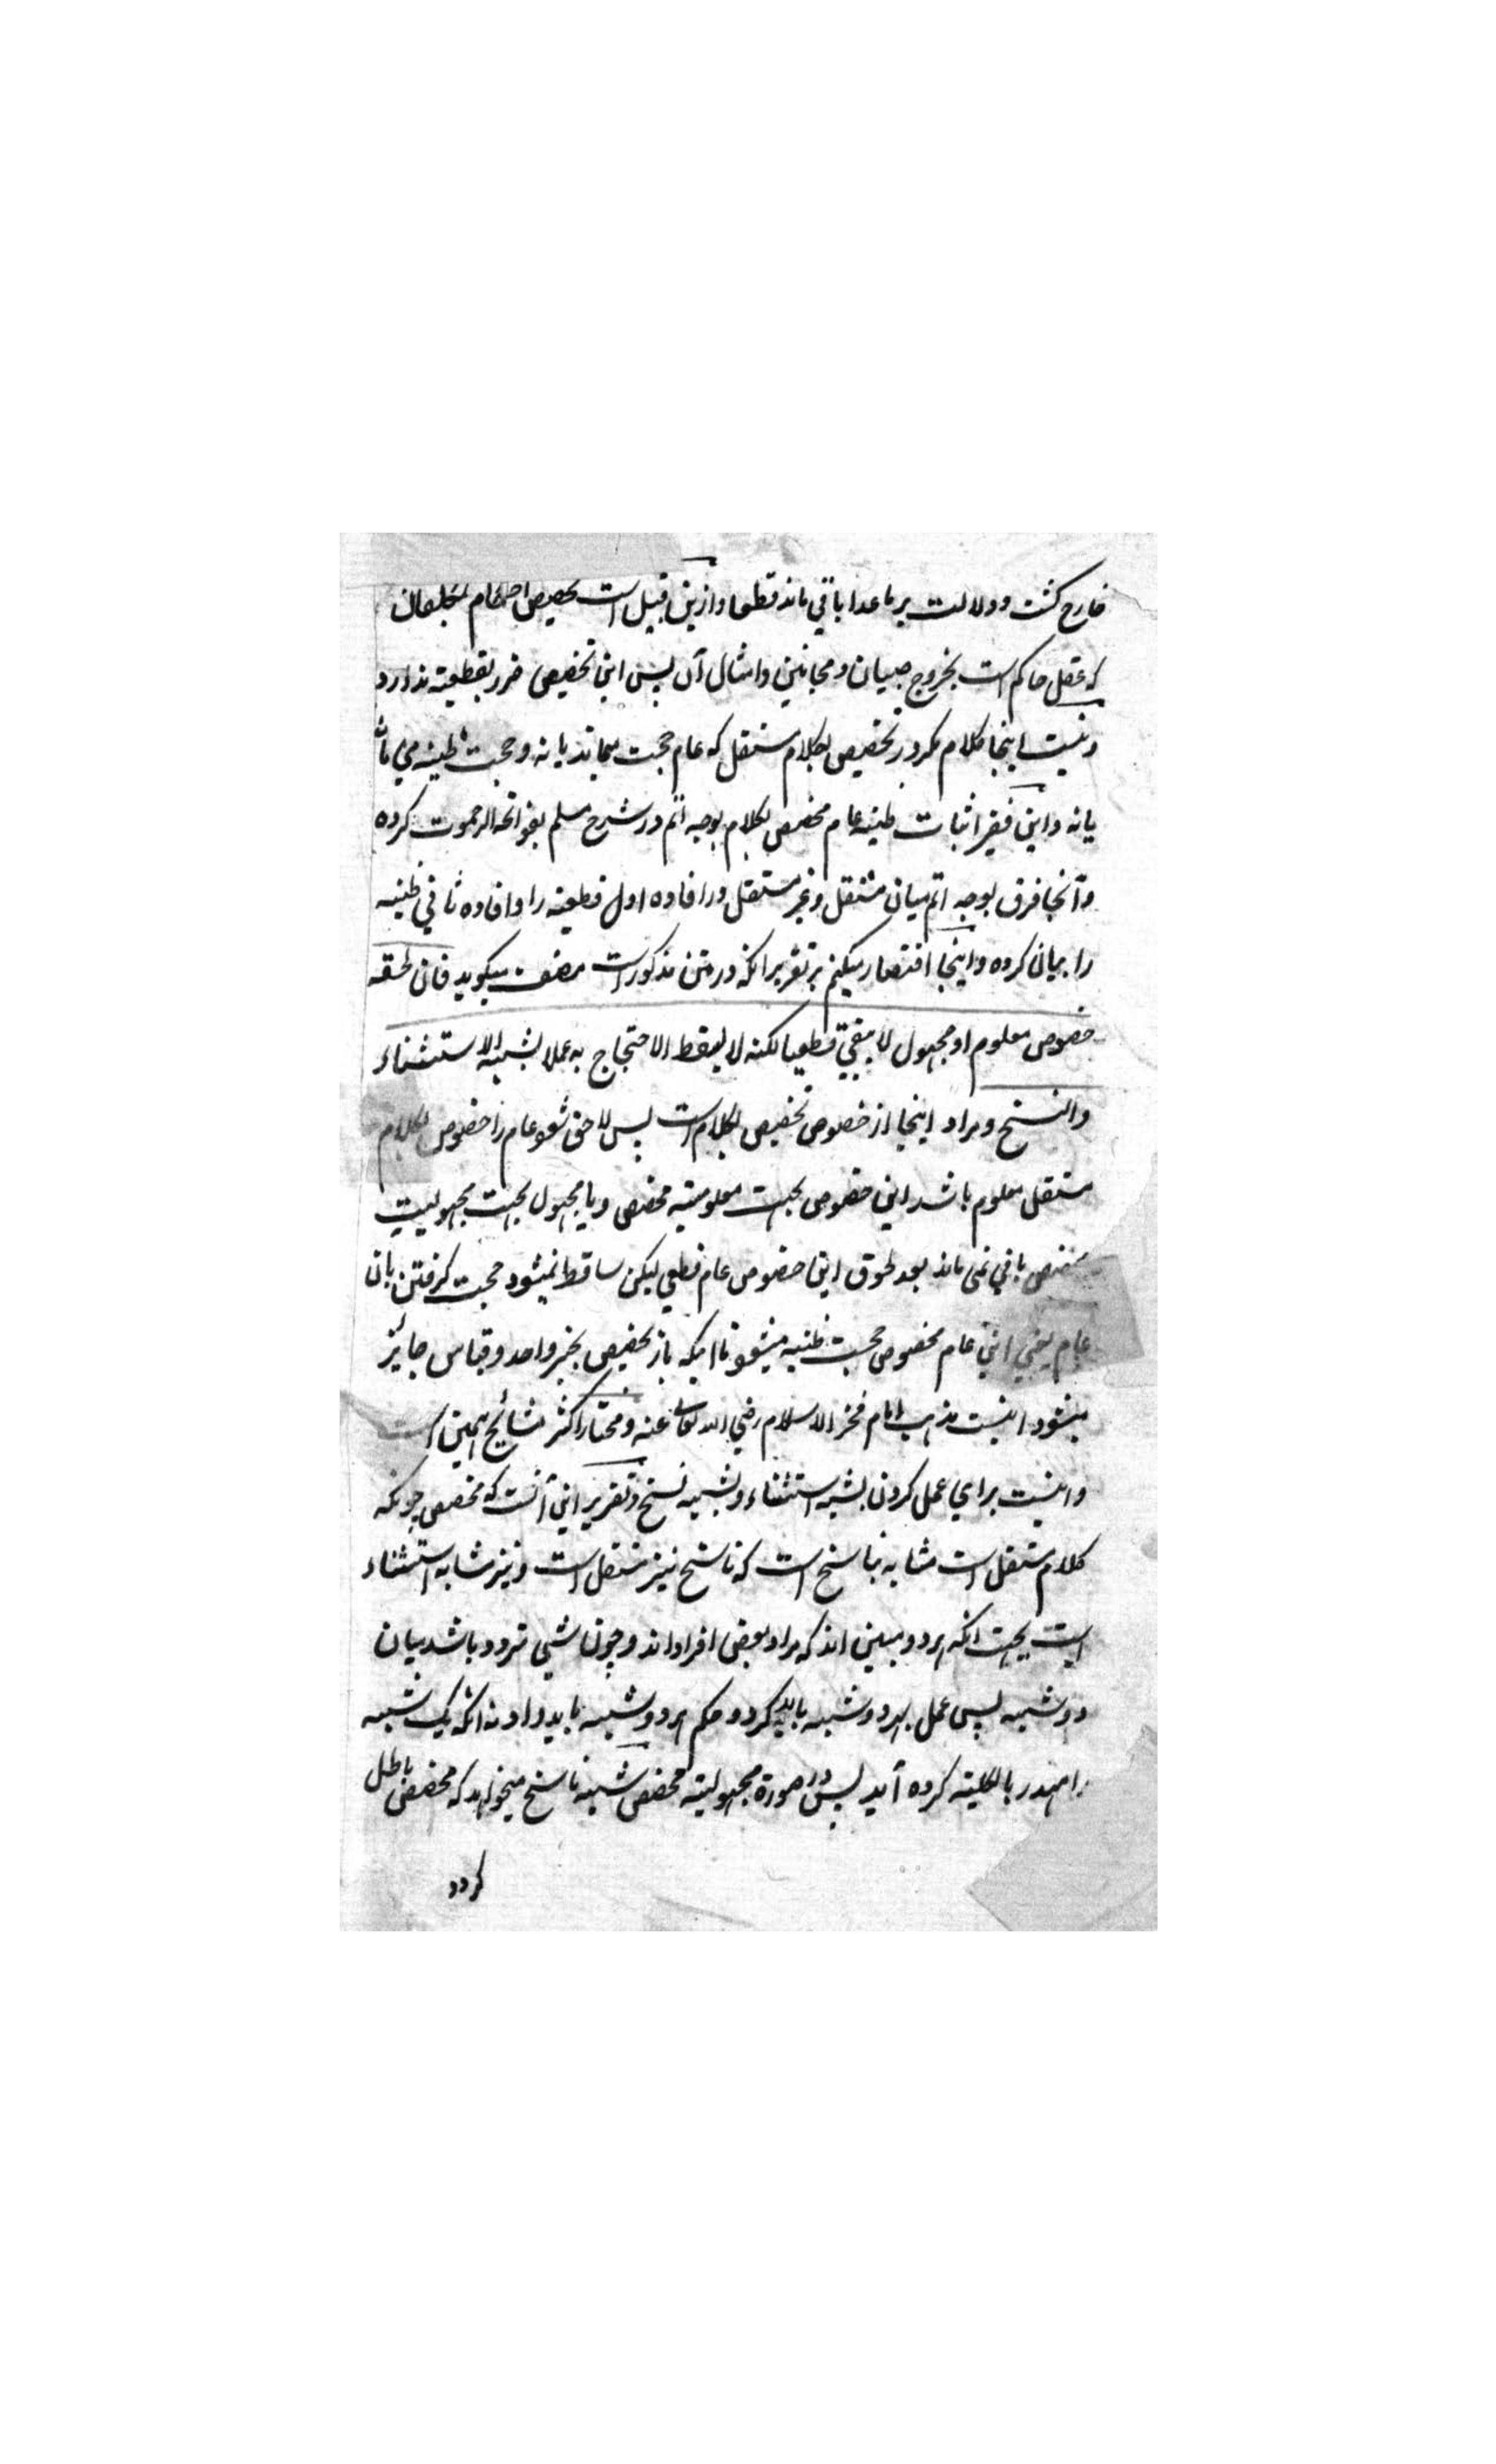 خارج گشت و دلالت بر ما عدا باقی ماند قطعا و ازین قبیل است تخصیص احکام بمکلفان
که عقل حاکم است بخروج صبیان و مجانین و امثال آن پس این تخصیص ضرر بقطعیة ندارد
و نیست اینجا کلام مگر در تخصیص بکلام مستقل که عام حجت میماند یا نه و حجت ظنیه می ماند
یا نه و این فقیر اثبات ظنیه عام مخصص بکلام بوجه اتم در شرح مسلم بفواتح الرحموت کرده
و آنجا فرق بوجه اتم میان مستقل و غیر مستقل در افاده اول قطعیة را و افاده ثانی ظنیه
را بیان کرده و اینجا اقتصار میکنم بر تقریر انکه در متن مذکور است مصنف میگوید فان لحقه
خصوص معلوم او مجهول لا یبقی قطعیا لکنه لا یسقط الاحتجاج به عملا بشبه الاستثناء
والنسخ و مراد اینجا از خصوص تخصیص بکلام است پس لاحق شود عام را خصوص بکلام
مستقل معلوم باشد این خصوص بجهت معلومیة مخصص و یا مجهول بجهت مجهولیت
مخصص باقی نمی ماند بعد لحوق این خصوص عام قطعی لیکن ساقط نمیشود حجت گرفتن بان
عام یعنی این عام مخصوص حجت ظنیه میشود تا اینکه باز تخصیص بخبر واحد و قیاس جائز
میشود اینست مذهب امام فخر الاسلام رضی الله تعالی عنه و مختار اکثر مشائخ همین است
و اینست برای عمل کردن بشبه استثناء و بشبه نسخ و تقریر این آنست که مخصص چونکه
کلام مستقل است مشابه بناسخ است که ناسخ نیز مستقل است و نیز مشابه استثناء
است بجهت انکه هر دو مبین اند که مراد بعض افراد اند و چون شی متردد باشد میان
دو شبه پس عمل بهر دو شبه باید کرد و حکم هر دو شبه باید داد نه انکه یک شبه
را هدر بالکلیة کرده آید پس در صورة مجهولیة مخصص شبه ناسخ میخواهد که مخصص باطل
گردد